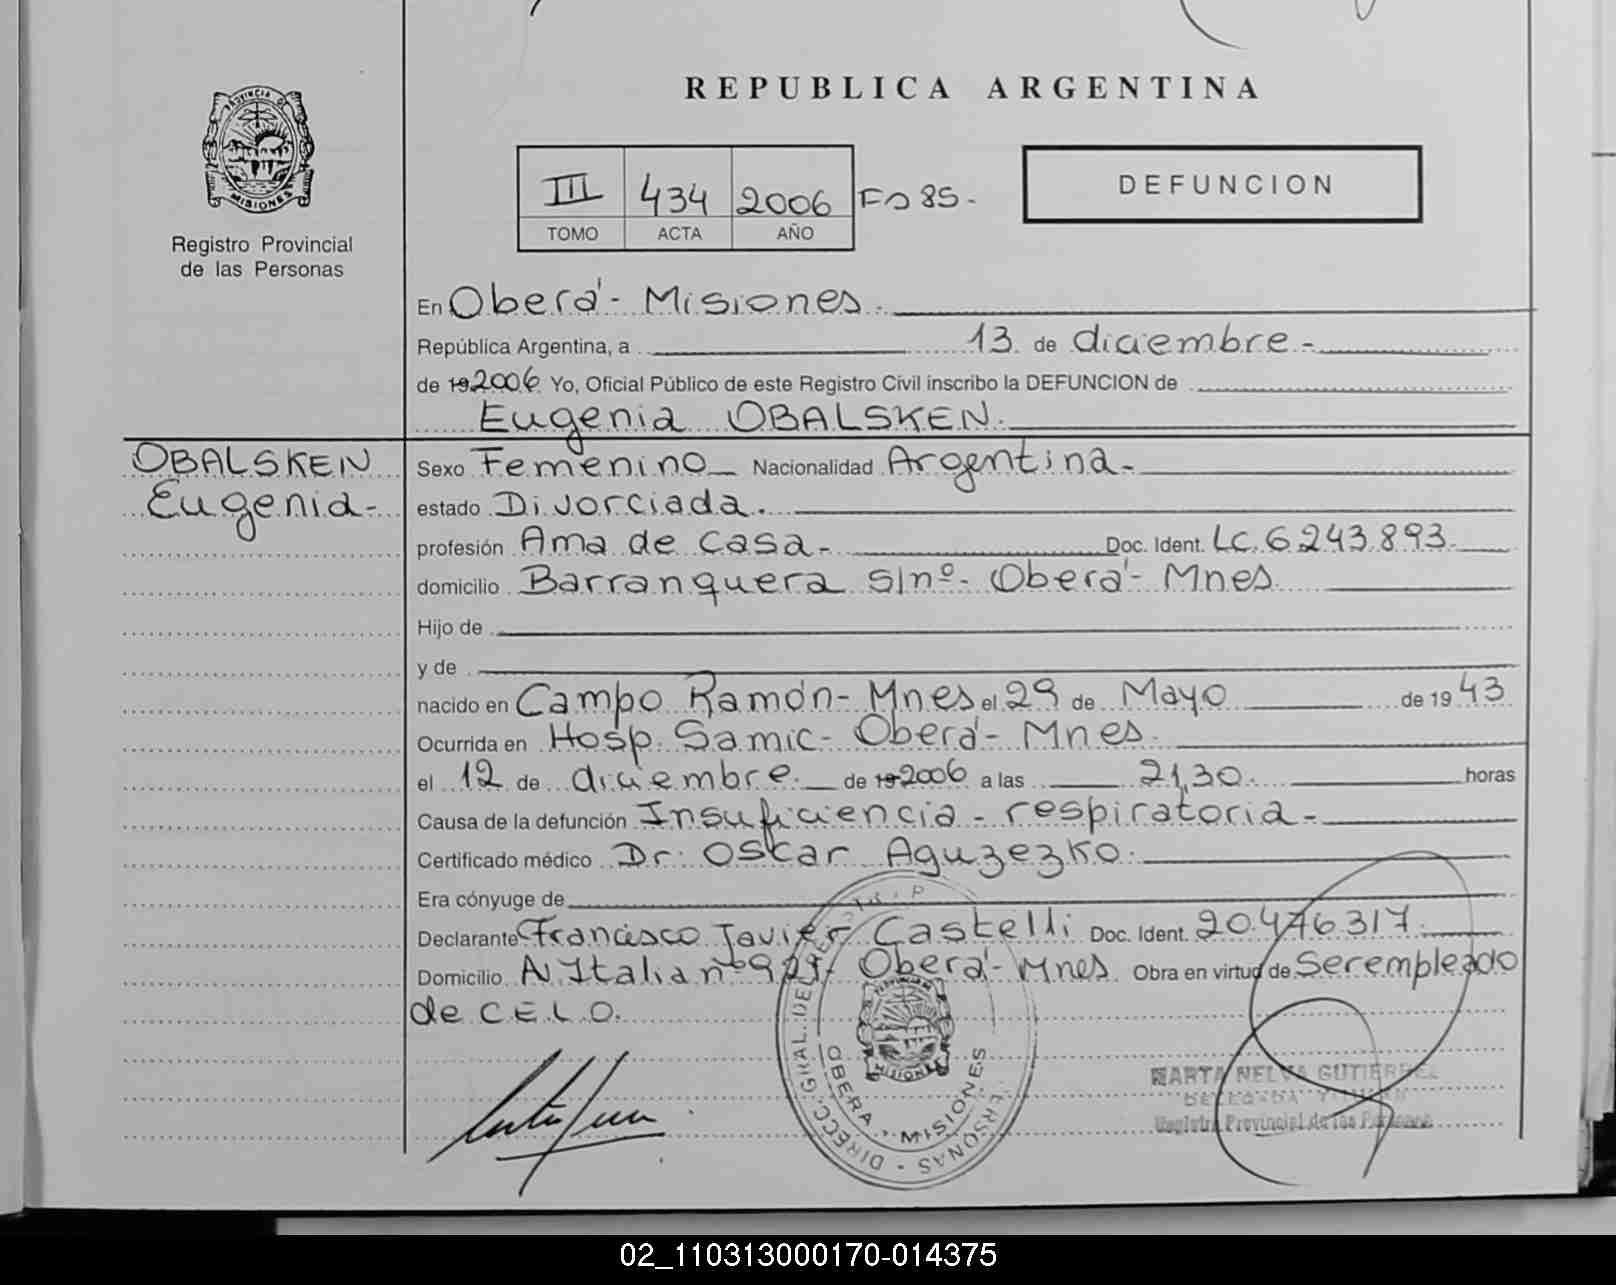 REPUBLICA ARGENTINA
PROVINCIA DE
MISIONES
Registro Provincial
de las Personas
III 434 2006 Fo 85.
TOMO ACTA AÑO
DEFUNCION
En Oberá - Misiones.
República Argentina, a 13 de diciembre -
de 19 2006 Yo, Oficial Público de este Registro Civil inscribo la DEFUNCION de
Eugenia OBALSKEN.
OBALSKEN
Eugenia -
Sexo Femenino Nacionalidad Argentina -
estado Divorciada.
profesión Ama de casa - Doc. Ident. LC. 6.243.893
domicilio Barranquera s/nº - Oberá - Mnes.
Hijo de
y de
nacido en Campo Ramón - Mnes el 29 de Mayo de 19 43
Ocurrida en Hosp. Samic - Oberá - Mnes.
el 12 de diciembre. de 19 2006 a las 21,30. horas
Causa de la defunción Insuficiencia - respiratoria -
Certificado médico Dr. Oscar Aguzezko.
Era cónyuge de
Declarante Francisco Javier Castelli Doc. Ident. 20.476.317
Domicilio N. Italia nº 921 - Oberá - Mnes. Obra en virtud de Ser empleado
de C.E.L.O.
OBERA - MISIONES
MARTA NELVA GUTIERREZ
Registro Provincial de las Personas
02_110313000170-014375